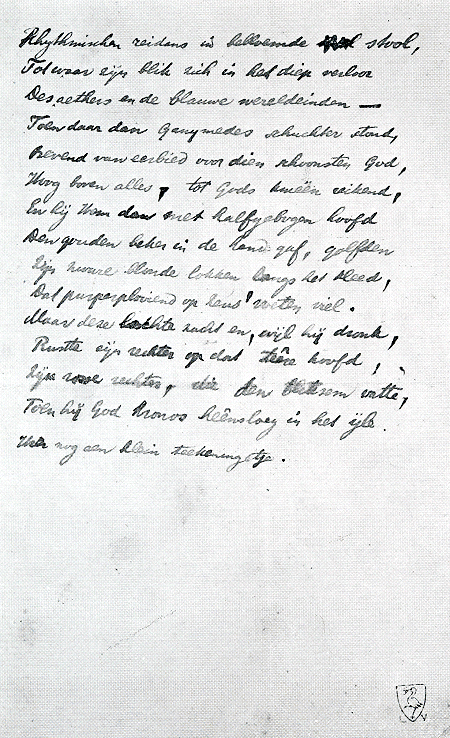 Rhythmischen reidans in bebloemde stool,
Tot waar zijn blik zich in het diep verloor
Des aethers en de blauwe wereldeinden —
Toen daar dan Ganymedes schuchter stond,
Bevend van eerbied voor dien schoonsten God,
Hoog boven alles, tot Gods knieën reikend,
En hij Hem dan met halfgebogen hoofd
Den gouden beker in de hand gaf, golfden
Zijn zware blonde lokken langs het kleed,
Dat purperplooiend op Zeus' voeten viel.
Maar deze lachte zacht en, wijl hij dronk,
Rustte zijn rechter op dat teêre hoofd,
Zijn rechter, die den bliksem vatte,
Toen hij God Kronos heênsloeg in het ijle.
Hier nog een klein teekeningetje.
L V